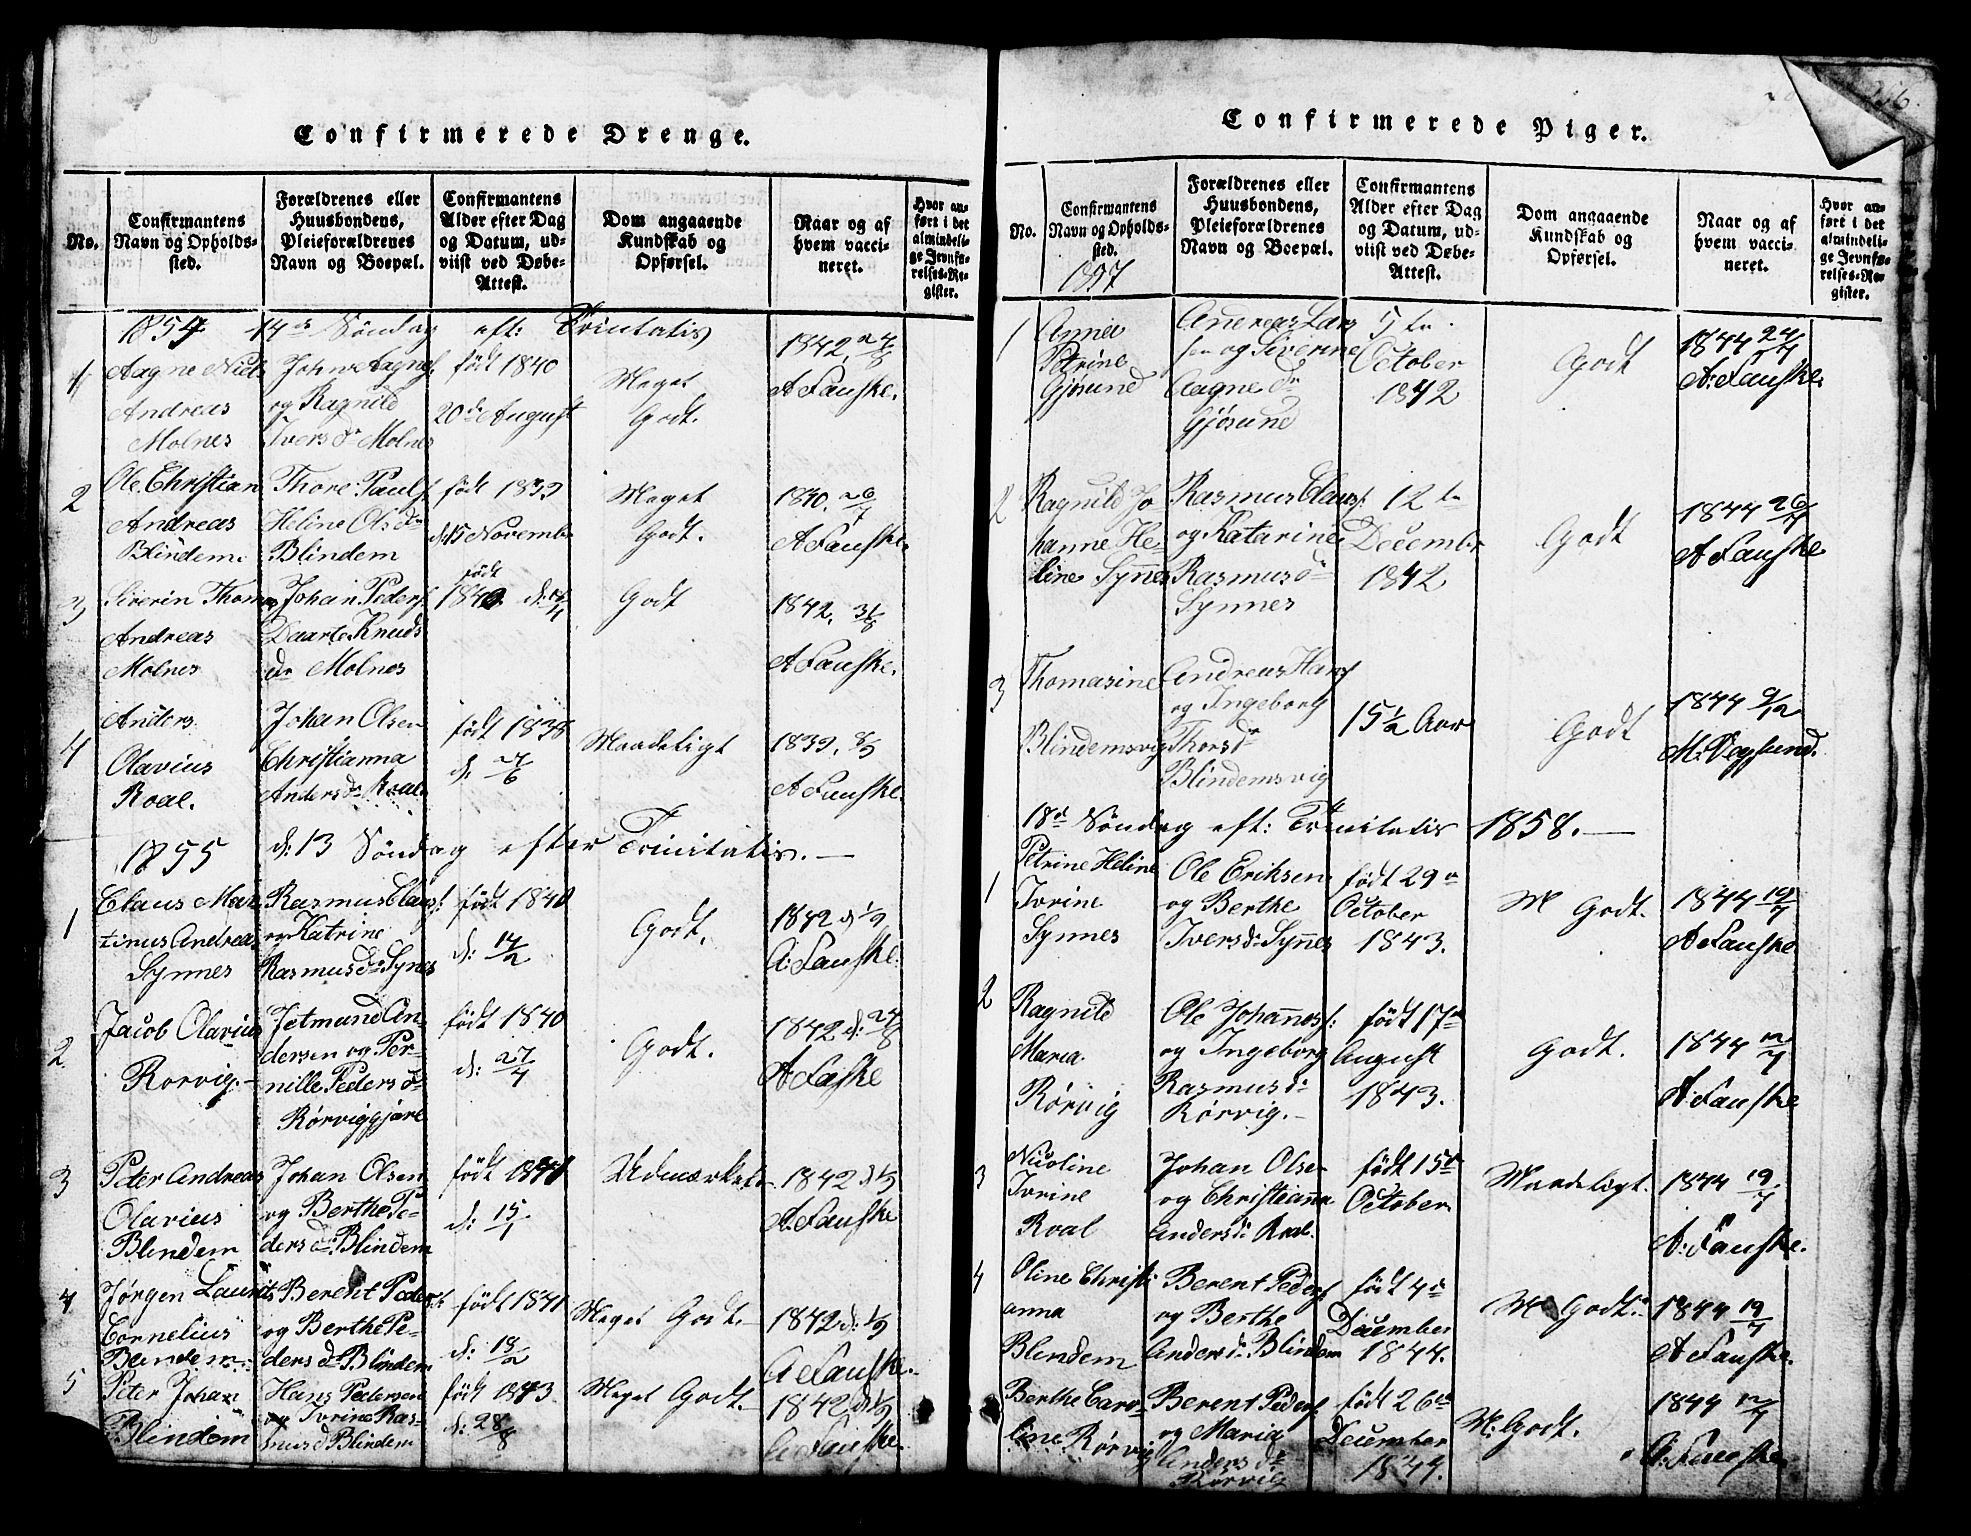 Confirmerede Drenge.
No.
Confirmantens Navn og Opholds-sted.
Forældrenes eller Huusbondens, Pleieforældrenes Navn og Boepæl.
Confirmantens Alder efter Dag og Datum, ud-viist ved Døbe-Attest.
Dom angaaende Kundskab og Opførsel.
Naar og af hvem vacci-neret.
Hvor an-ført i det almindeli-ge Jevnfø-relses-Re-gister.
1854 14de Söndag eft: Trinitatis
1
Aagne Niels
Andreas
Molnes
og Ragnild
Ivers dr Molnes
født 1840
20de August
Meget
Godt.
1842
A Fauske.
2
Ole Christian
Andreas
Blindem.
Thore Pauls:
Heline Ols dr
Blindem
født 1839
d: 15 Novembr
Meget
Godt.
1840, 26/7
A Fauske.
3
Siverin Thomas
Andreas
Molnes
Johan Peders:
Knuds
dr Molnes
født
Godt
1842, 31/8
A Fauske.
4
Anders
Olavius
Roal.
Johan Olsen
Christianna
Anders dr Roal.
født 1838
d: 27/6
Maadeligt
1839, 8/9
A Fauske.
1855 d: 13 Söndag efter Trinitatis. —
1
Claus Mar
tinus Andreas
Synnes
Rasmus Claus:
og Katrine
Rasmus dr Synes
født 1840
d: 14/2
Godt.
1842 d 1/9
A: Fauske.
2
Jacob Olavius
Rorvig. -
Jetmund An-
dersen og Per-
nille Peders dr
Rørviggjære
født 1840
d: 27/4
Godt.
1842 d: 24/8
A Faske
3
Peter Andreas
Olavius
Blindem
Johan Olsen
og Berthe Pe-
ders dr Blindem
født 1841
d: 15/1
Udmærket
1842 d 1/9
A Fauske
4
Jørgen Laurits
Cornelius
Blindem
Berent Peder:
og Berthe Pe-
ders dr Blindem
født 1841
d: 13/2
Meget Godt. -
1842 d: 1/9
A Fauske.
5
Peter Johan
Blindem
Hans Pedersen
og Ivrine Ras-
mus d Blindem
født 1843
d: 28/8
Meget Godt. -
1842 d 1/9
A Fauske.
Confirmerede Piger.
No.
Confirmantens Navn og Opholds-sted.
1857
Forældrenes eller Huusbondens, Pleieforældrenes Navn og Boepæl.
Confirmantens Alder efter Dag og Datum, ud-viist ved Døbe-Attest.
Dom angaaende Kundskab og Opførsel.
Naar og af hvem vacci-neret.
Hvor an-ført i det almindeli-ge Jevnfø-relses-Re-gister.
1
Anne
Petrine
Gjøsund
Andreas Lars
sen og Siverine
Aagne dr
Gjøsund
5te
October
1842
Godt
1844 24/7
A: Fauske.
2
Ragnild Jo
hanne He-
line Synnes
Rasmus Claus:
og Katarine
Rasmus dr
Synnes
12te
December
1842
Godt
1844 26/7
A Fauske
3
Thomasine
Blindemsvig
Andreas Hans:
og Ingeborg
Thors dr
Blindemsvig
15½ Aar
Godt
1844 9/12
M: Vegsund.
18de Söndag eft: Trinitatis 1858. —
1
Petrine Heline
Ivrine
Synnes
Ole Eriksen
og Berthe
Ivers dr Synnes
født 29de
October
1843.
M Godt.
1844 19/7
A Fauske
2
Ragnild
Maria
Rørvig
Ole Johannes:
og Ingeborg
Rasmus dr
Rørvig. -
født 17de
August
1843.
Godt.
1844 12/7
A: Fauske
3
Nicoline
Ivrine
Roal
Johan Olsen
og Christianna
Anders dr Roal.
født 15de
October
Maadeligt.
1844 19/7
A: Fauske.
4
Oline Christi
anna
Blindem
Berent Peders:
og Berthe
Anders dr Blindem
født 4de
December
1844.
M Godt.
1844 19/7
A Fauske.
Berthe Caro-
line Rørvig
Berent Peders:
og Maria
Anders dr
Rørvig
født 26de
December
1844.
M: Godt.
1844 12/7
A: Fauske.